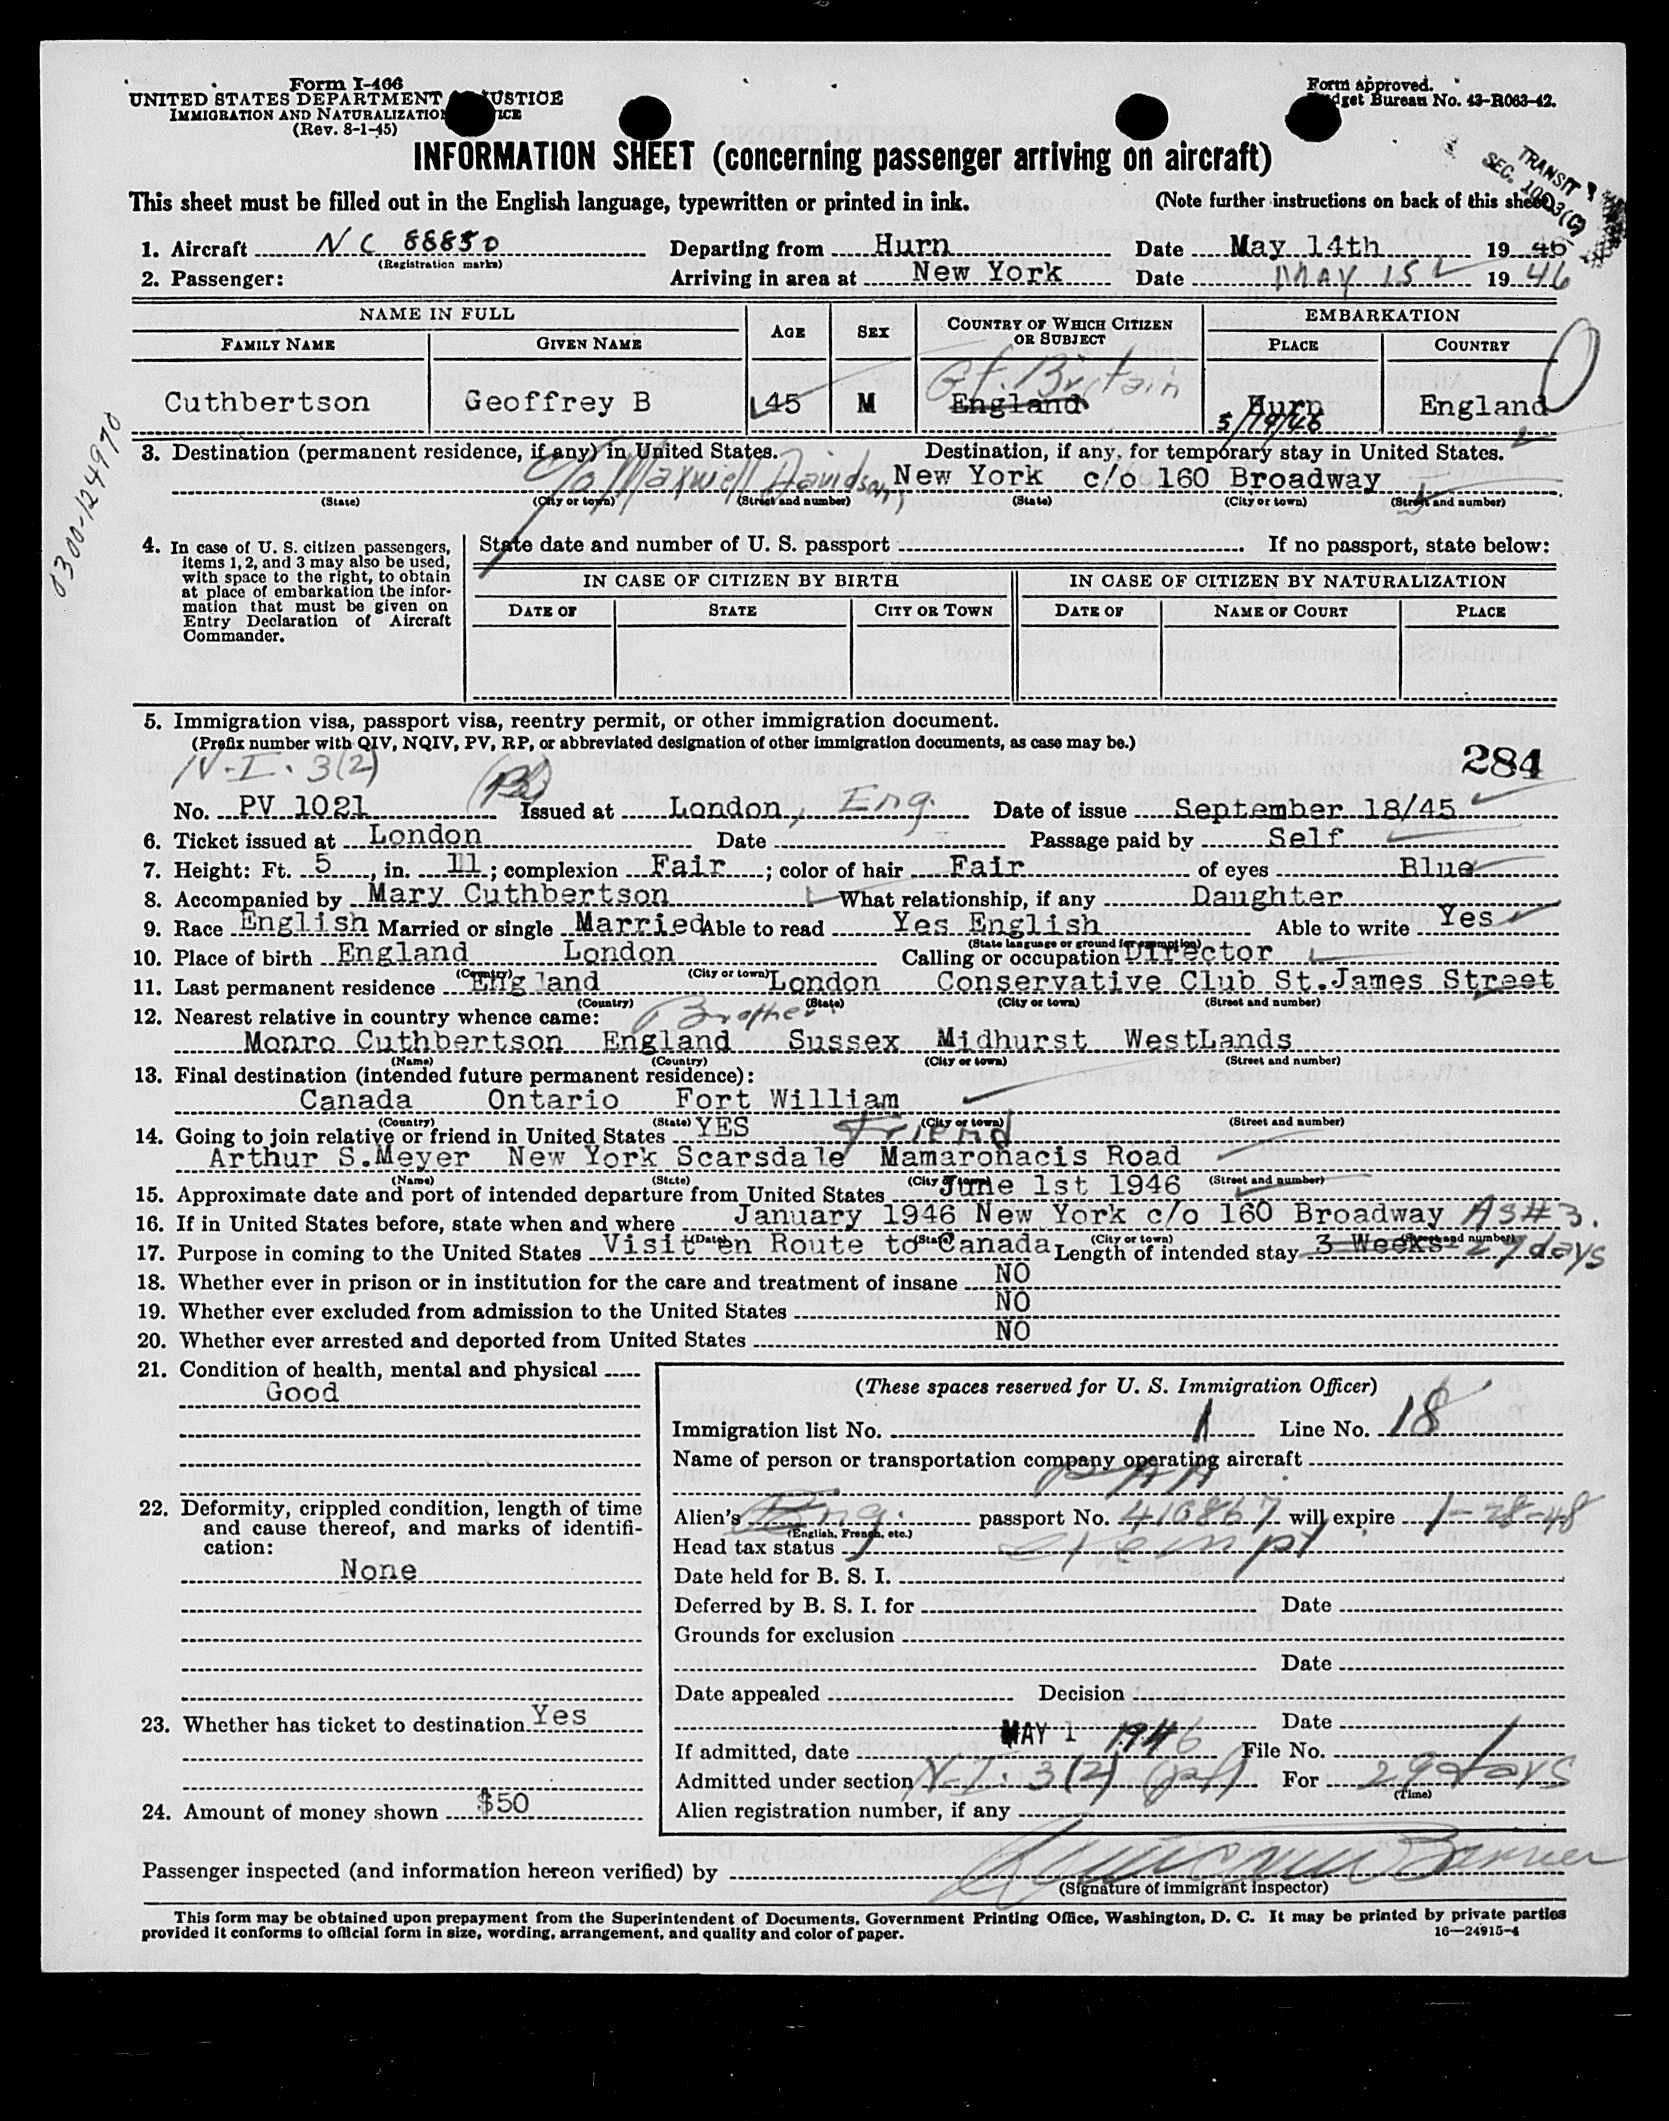 Form I-466
UNITED STATES DEPARTMENT JUSTICE
IMMIGRATION AND NATURALIZATION
(Rev. 8-1-45)
Form approved.
Budget Bureau No. 43-R063-42.
INFORMATION SHEET (concerning passenger arriving on aircraft)
TRANSIT
SEC.
This sheet must be filled out in the English language, typewritten or printed in ink. (Note further instructions on back of this sheet)
1. Aircraft NC 88850 Departing from Hurn Date May 14th 1946
(Registration marks)
2. Passenger: Arriving in area at New York Date MAY 15 1946
NAME IN FULL AGE SEX COUNTRY OF WHICH CITIZEN OR SUBJECT EMBARKATION
FAMILY NAME GIVEN NAME PLACE COUNTRY
Gt. Britain
Cuthbertson Geoffrey B 45 M England Hurn England
5/14/46
0300-124970
3. Destination (permanent residence, if any) in United States. Destination, if any, for temporary stay in United States.
c/o Maxwell Davidson, New York c/o 160 Broadway
(State) (City or town) (Street and number) (State) (City or town) (Street and number)
4. In case of U. S. citizen passengers, items 1, 2, and 3 may also be used, with space to the right, to obtain at place of embarkation the information that must be given on Entry Declaration of Aircraft Commander.
State date and number of U. S. passport If no passport, state below:
IN CASE OF CITIZEN BY BIRTH IN CASE OF CITIZEN BY NATURALIZATION
DATE OF STATE CITY OR TOWN DATE OF NAME OF COURT PLACE
5. Immigration visa, passport visa, reentry permit, or other immigration document.
(Prefix number with QIV, NQIV, PV, RP, or abbreviated designation of other immigration documents, as case may be.)
284
N.I. 3(2)
No. PV 1021 Issued at London, Eng. Date of issue September 18/45
6. Ticket issued at London Date Passage paid by Self
7. Height: Ft. 5, in. 11; complexion Fair; color of hair Fair of eyes Blue
8. Accompanied by Mary Cuthbertson What relationship, if any Daughter
9. Race English Married or single Married Able to read Yes English Able to write Yes
(State language or ground for exemption)
10. Place of birth England London Calling or occupation Director
(Country) (City or town)
11. Last permanent residence England London Conservative Club St.James Street
(Country) (State) (City or town) (Street and number)
12. Nearest relative in country whence came: Brother
Monro Cuthbertson England Sussex Midhurst WestLands
(Name) (Country) (City or town) (Street and number)
13. Final destination (intended future permanent residence):
Canada Ontario Fort William
(Country) (State) (City or town) (Street and number)
14. Going to join relative or friend in United States YES Friend
Arthur S.Meyer New York Scarsdale Mamaronacis Road
(Name) (State) (City or town) (Street and number)
15. Approximate date and port of intended departure from United States June 1st 1946
16. If in United States before, state when and where January 1946 New York c/o 160 Broadway AS#3.
(Date) (State) (City or town) (Street and number)
17. Purpose in coming to the United States Visit en Route to Canada Length of intended stay 3 Weeks 29 days
18. Whether ever in prison or in institution for the care and treatment of insane NO
19. Whether ever excluded from admission to the United States NO
20. Whether ever arrested and deported from United States NO
21. Condition of health, mental and physical
Good
22. Deformity, crippled condition, length of time and cause thereof, and marks of identification:
None
23. Whether has ticket to destination Yes
24. Amount of money shown $50
(These spaces reserved for U. S. Immigration Officer)
Immigration list No. 1 Line No. 18
Name of person or transportation company operating aircraft
PAA
Alien's Eng. passport No. 410867 will expire 1-28-48
(English, French, etc.)
Head tax status exempt
Date held for B. S. I.
Deferred by B. S. I. for Date
Grounds for exclusion
Date
Date appealed Decision
Date
If admitted, date MAY 1 1946 File No.
Admitted under section N.I. 3(2) For 29 days
(Time)
Alien registration number, if any
Passenger inspected (and information hereon verified) by
(Signature of immigrant inspector)
This form may be obtained upon prepayment from the Superintendent of Documents, Government Printing Office, Washington, D. C. It may be printed by private parties
provided it conforms to official form in size, wording, arrangement, and quality and color of paper. 16—24915-4